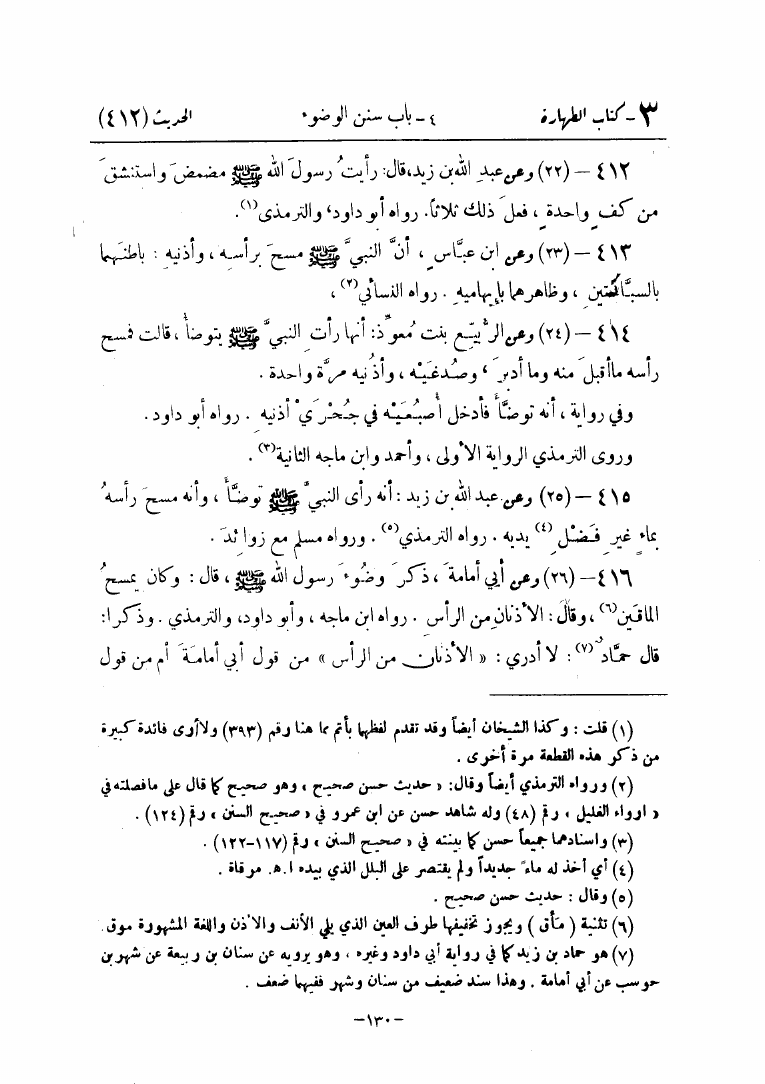 ٣ - كتاب الطهارة ٤ - باب سنن الوضوء الحديث (٤١٢)
٤١٢ - (٢٢) وعن عبدِ الله بن زيد، قال: رأيتُ رسولَ الله ﷺ مضمضَ واستنشقَ
من كفٍ واحدةٍ، فعلَ ذلك ثلاثاً. رواه أبو داود، والترمذي(١).
٤١٣ - (٢٣) وعن ابن عبَّاسٍ، أنَّ النبيَّ ﷺ مسحَ برأسه، وأذنيه: باطنَهما
بالسبَّاحتين، وظاهرهما بإبهاميه. رواه النسائي(٢).
٤١٤ - (٢٤) وعن الرُّبيّع بنت مُعوِّذ: أنها رأت النبيَّ ﷺ يتوضأ، قالت فمسح
رأسه ما أقبلَ منه وما أدبرَ، وصُدغَيْه، وأذُنيه مرَّة واحدة.
وفي رواية، أنه توضَّأَ فأدخل أُصبُعَيْه في جُحْرَيْ أذنيه. رواه أبو داود.
وروى الترمذي الرواية الأولى، وأحمد وابن ماجه الثانية(٣).
٤١٥ - (٢٥) وعن عبد الله بن زيد: أنه رأى النبيَّ ﷺ توضَّأَ، وأنه مسحَ رأسهُ
بماءٍ غيرِ فَضْلِ(٤) يديه. رواه الترمذي(٥). ورواه مسلم مع زوائدَ.
٤١٦ - (٢٦) وعن أبي أمامةَ، ذكرَ وضُوءَ رسول الله ﷺ، قال: وكان يمسحُ
الماقين(٦)، وقالَ: الأذنان من الرأس. رواه ابن ماجه، وأبو داود، والترمذي. وذكرا:
قال حمَّاد(٧): لا أدري: «الأذنان من الرأس» من قول أبي أمامةَ أم من قول
(١) قلت: وكذا الشيخان أيضاً وقد تقدم لفظها بأتم مما هنا رقم (٣٩٣) ولا أرى فائدة كبيرة
من ذكر هذه القطعة مرة أخرى.
(٢) ورواه الترمذي أيضاً وقال: «حديث حسن صحيح»، وهو صحيح كما قال على ما فصلته في
«ارواء الغليل» رقم (٤٨) وله شاهد حسن عن ابن عمرو في «صحيح السنن» رقم (١٢٤).
(٣) واسنادهما جميعاً حسن كما بينته في «صحيح السنن» رقم (١١٧-١٢٢).
(٤) أي أخذ له ماءً جديداً ولم يقتصر على البلل الذي بيده ا.هـ. مرقاة.
(٥) وقال: حديث حسن صحيح.
(٦) تثنية (مَأق) ويجوز تخفيفها طرف العين الذي يلي الأنف والأذن واللغة المشهورة موق.
(٧) هو حماد بن زيد كما في رواية أبي داود وغيره، وهو يرويه عن سنان بن ربيعة عن شهر بن
حوسب عن أبي أمامة. وهذا سند ضعيف من سنان وشهر ففيهما ضعف.
-١٣٠-